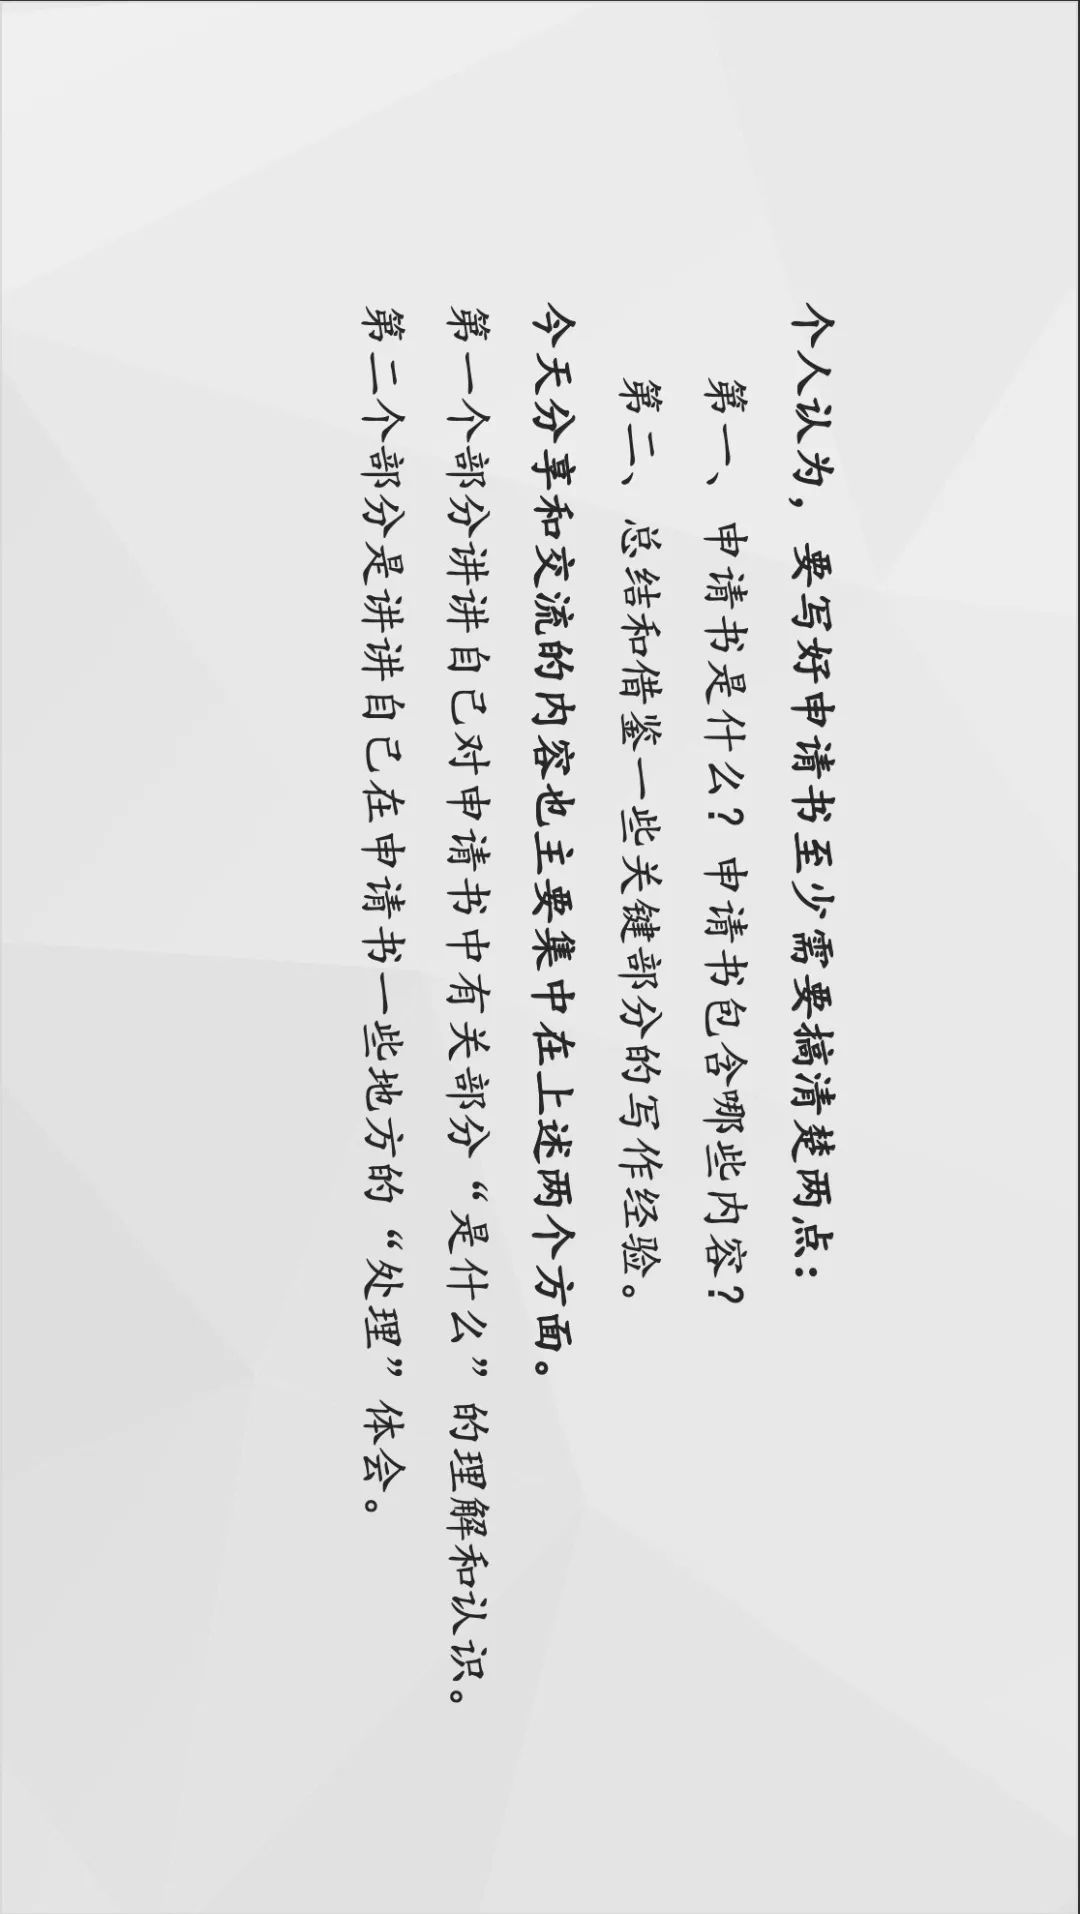 个人认为，要写好申请书至少需要搞清楚两点：
第一、申请书是什么？申请书包含哪些内容？
第二、总结和借鉴一些关键部分的写作经验。
今天分享和交流的内容也主要集中在上述两个方面。
第一个部分讲讲自己对申请书中有关部分“是什么”的理解和认识。
第二个部分是讲讲自己在申请书一些地方的“处理”体会。